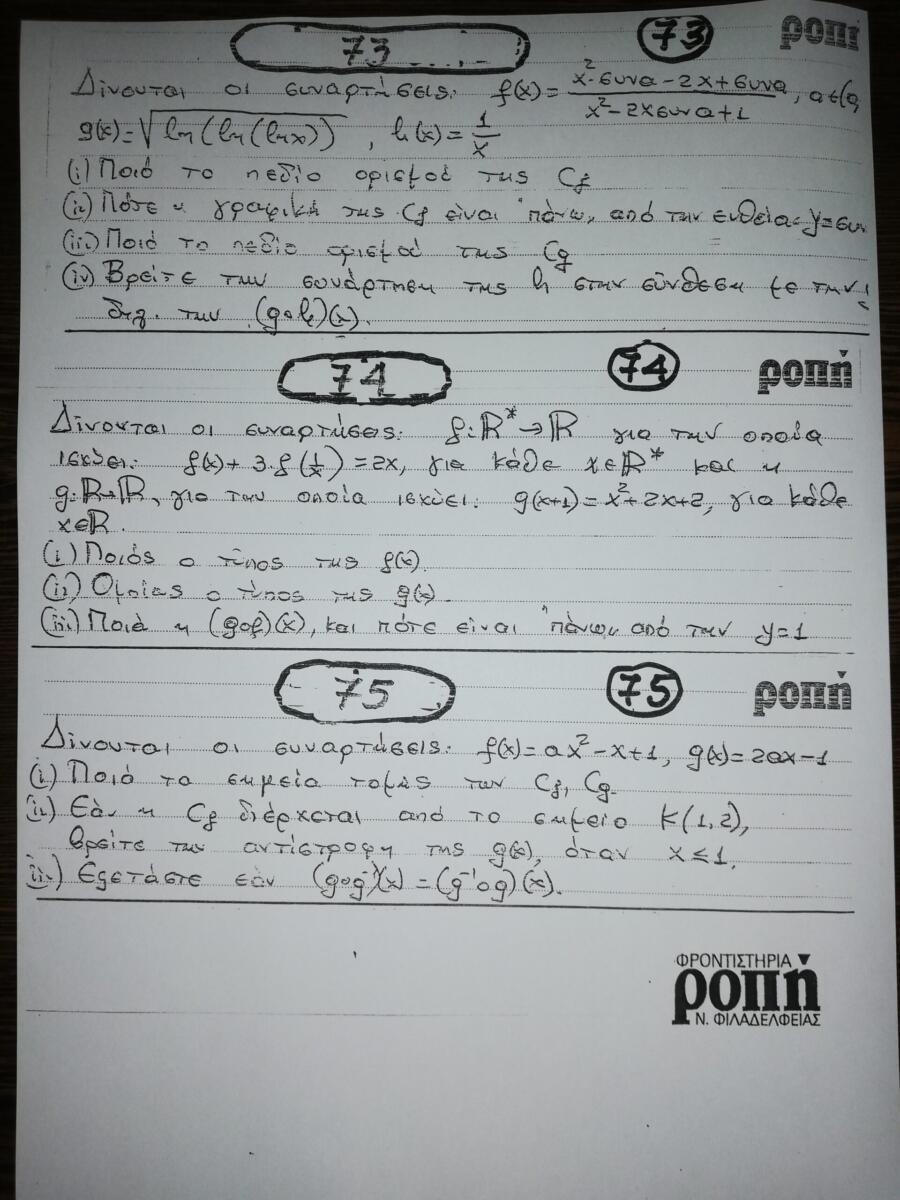 73 73 ροπή
Δίνονται οι συναρτήσεις: f(x)= (x²·συνα-2x+συνα)/(x²-2xσυνα+1), α∈(0,
g(x)=√(ln(ln(lnx))), h(x)=1/x
(i) Ποιό το πεδίο ορισμού της Cf
(ii) Πότε η γραφική της Cf είναι "πάνω" από την ευθεία y=συν
(iii) Ποιό το πεδίο ορισμού της Cg
(iv) Βρείτε την συνάρτηση της h στην σύνθεση με την
δηλ. την (goh)(x).
74 74 ροπή
Δίνονται οι συναρτήσεις: f:ℝ*→ℝ για την οποία
ισχύει: f(x)+3·f(1/x)=2x, για κάθε x∈ℝ* και η
g:ℝ→ℝ, για την οποία ισχύει: g(x+1)=x²+2x+2, για κάθε
x∈ℝ.
(i) Ποιός ο τύπος της f(x)
(ii) Ομοίως ο τύπος της g(x).
(iii) Ποιά η (gof)(x), και πότε είναι "πάνω" από την y=1
75 75 ροπή
Δίνονται οι συναρτήσεις: f(x)=αx²-x+1, g(x)=2αx-1
(i) Ποιό τα σημεία τομής των Cf, Cg.
(ii) Εάν η Cf διέρχεται από το σημείο Κ(1,2),
βρείτε την αντίστροφη της g(x), όταν x≤1.
(iii) Εξετάστε εάν (gog⁻¹)(x)=(g⁻¹og)(x).
ΦΡΟΝΤΙΣΤΗΡΙΑ
ροπή
Ν. ΦΙΛΑΔΕΛΦΕΙΑΣ